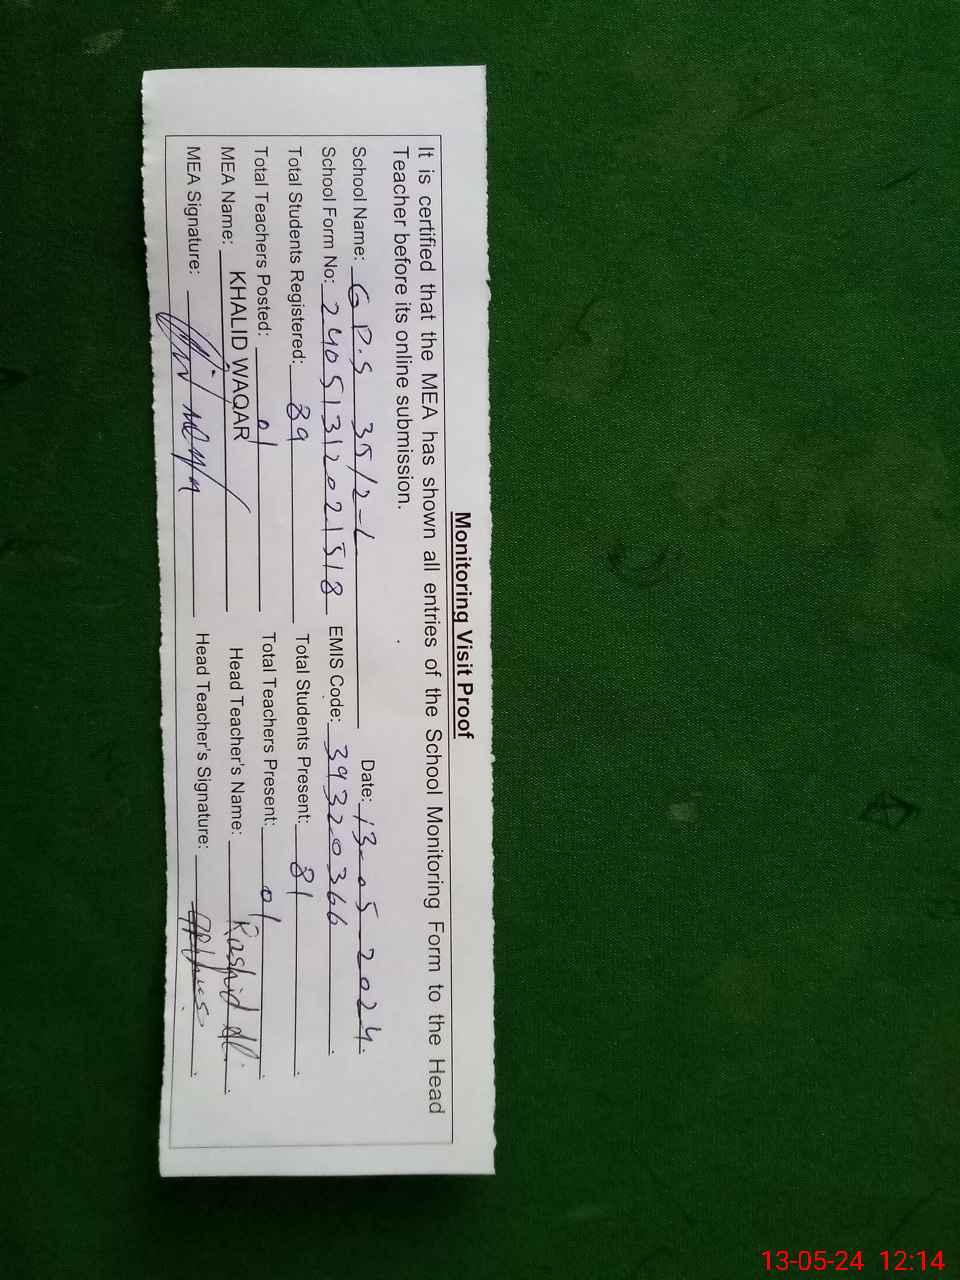 Monitoring Visit Proof
It is certified that the MEA has shown all entries of the School Monitoring Form to the Head
Teacher before its online submission.
School Name: G P.S 35/2-L Date: 13-05-2024.
School Form No: 24051312021518 EMIS Code: 39320366.
Total Students Registered: 89 Total Students Present: 81.
Total Teachers Posted: 01 Total Teachers Present: 01.
MEA Name: KHALID WAQAR Head Teacher's Name: Rashid Ali.
MEA Signature: Head Teacher's Signature:
13-05-24 12:14